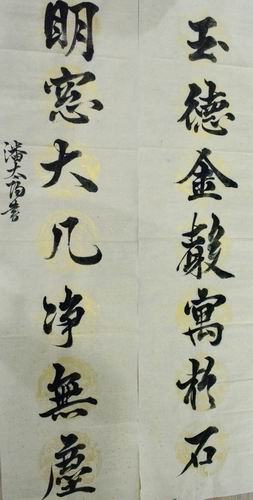 玉德金聲寓於石
明窓大几净無塵
潘太書